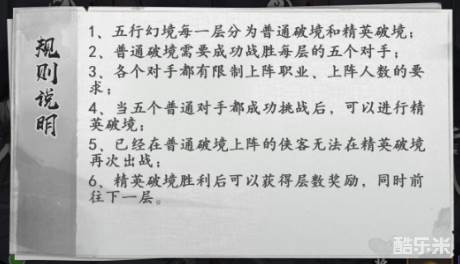 规则说明
1、五行幻境每一层分为普通破境和精英破境；
2、普通破境需要成功战胜每层的五个对手；
3、各个对手都有限制上阵职业、上阵人数的要
求；
4、当五个普通对手都成功挑战后，可以进行精
英破境；
5、已经在普通破境上阵的侠客无法在精英破境
再次出战；
6、精英破境胜利后可以获得层数奖励，同时前
往下一层。
酷乐米